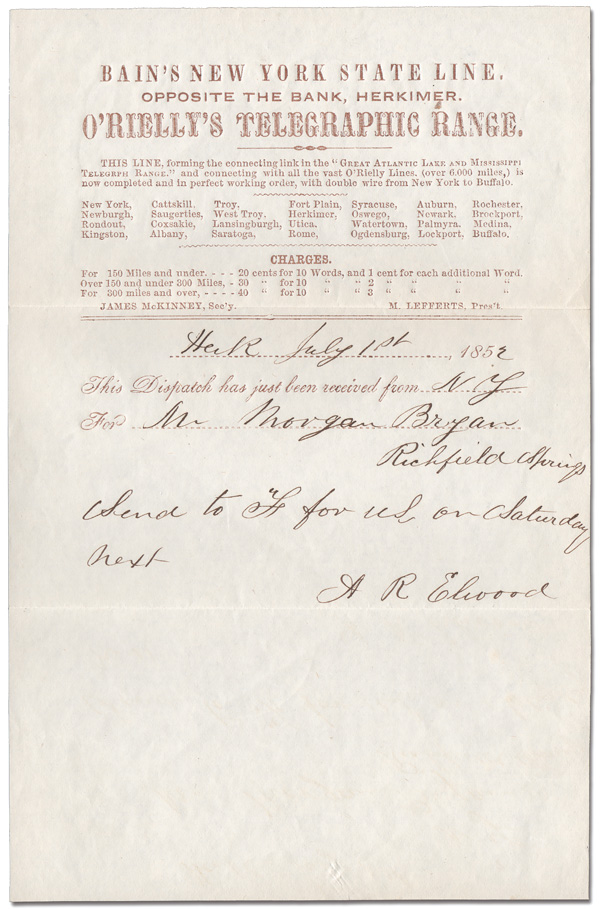 BAIN'S NEW YORK STATE LINE,
OPPOSITE THE BANK, HERKIMER.
O'RIELLY'S TELEGRAPHIC RANGE.
THIS LINE, forming the connecting link in the "GREAT ATLANTIC LAKE AND MISSISSIPPI
TELEGRPH RANGE." and connecting with all the vast O'Rielly Lines. (over 6.000 miles,) is
now completed and in perfect working order, with double wire from New York to Buffalo.
New York, Cattskill, Troy, Fort Plain, Syracuse, Auburn, Rochester,
Newburgh, Saugerties, West Troy, Herkimer, Oswego, Newark. Brockport,
Rondout, Coxsakie, Lansingburgh, Utica. Watertown, Palmyra. Medina,
Kingston, Albany, Saratoga, Rome, Ogdensburg, Lockport, Buffalo.
CHARGES.
For 150 Miles and under. - - - 20 cents for 10 Words, and 1 cent for each additional Word.
Over 150 and under 300 Miles, - 30 " for 10 " " 2 " " " "
For 300 miles and over, - - - - 40 " for 10 " " 3 " " " "
JAMES McKINNEY, Sec'y. M. LEFFERTS, Pres't.
Herk July 1st, 1852
This Dispatch has just been received from N Y
For Mr Morgan Bryan
Richfield Springs
Send to "F for us on Saturday
next
A R Elwood